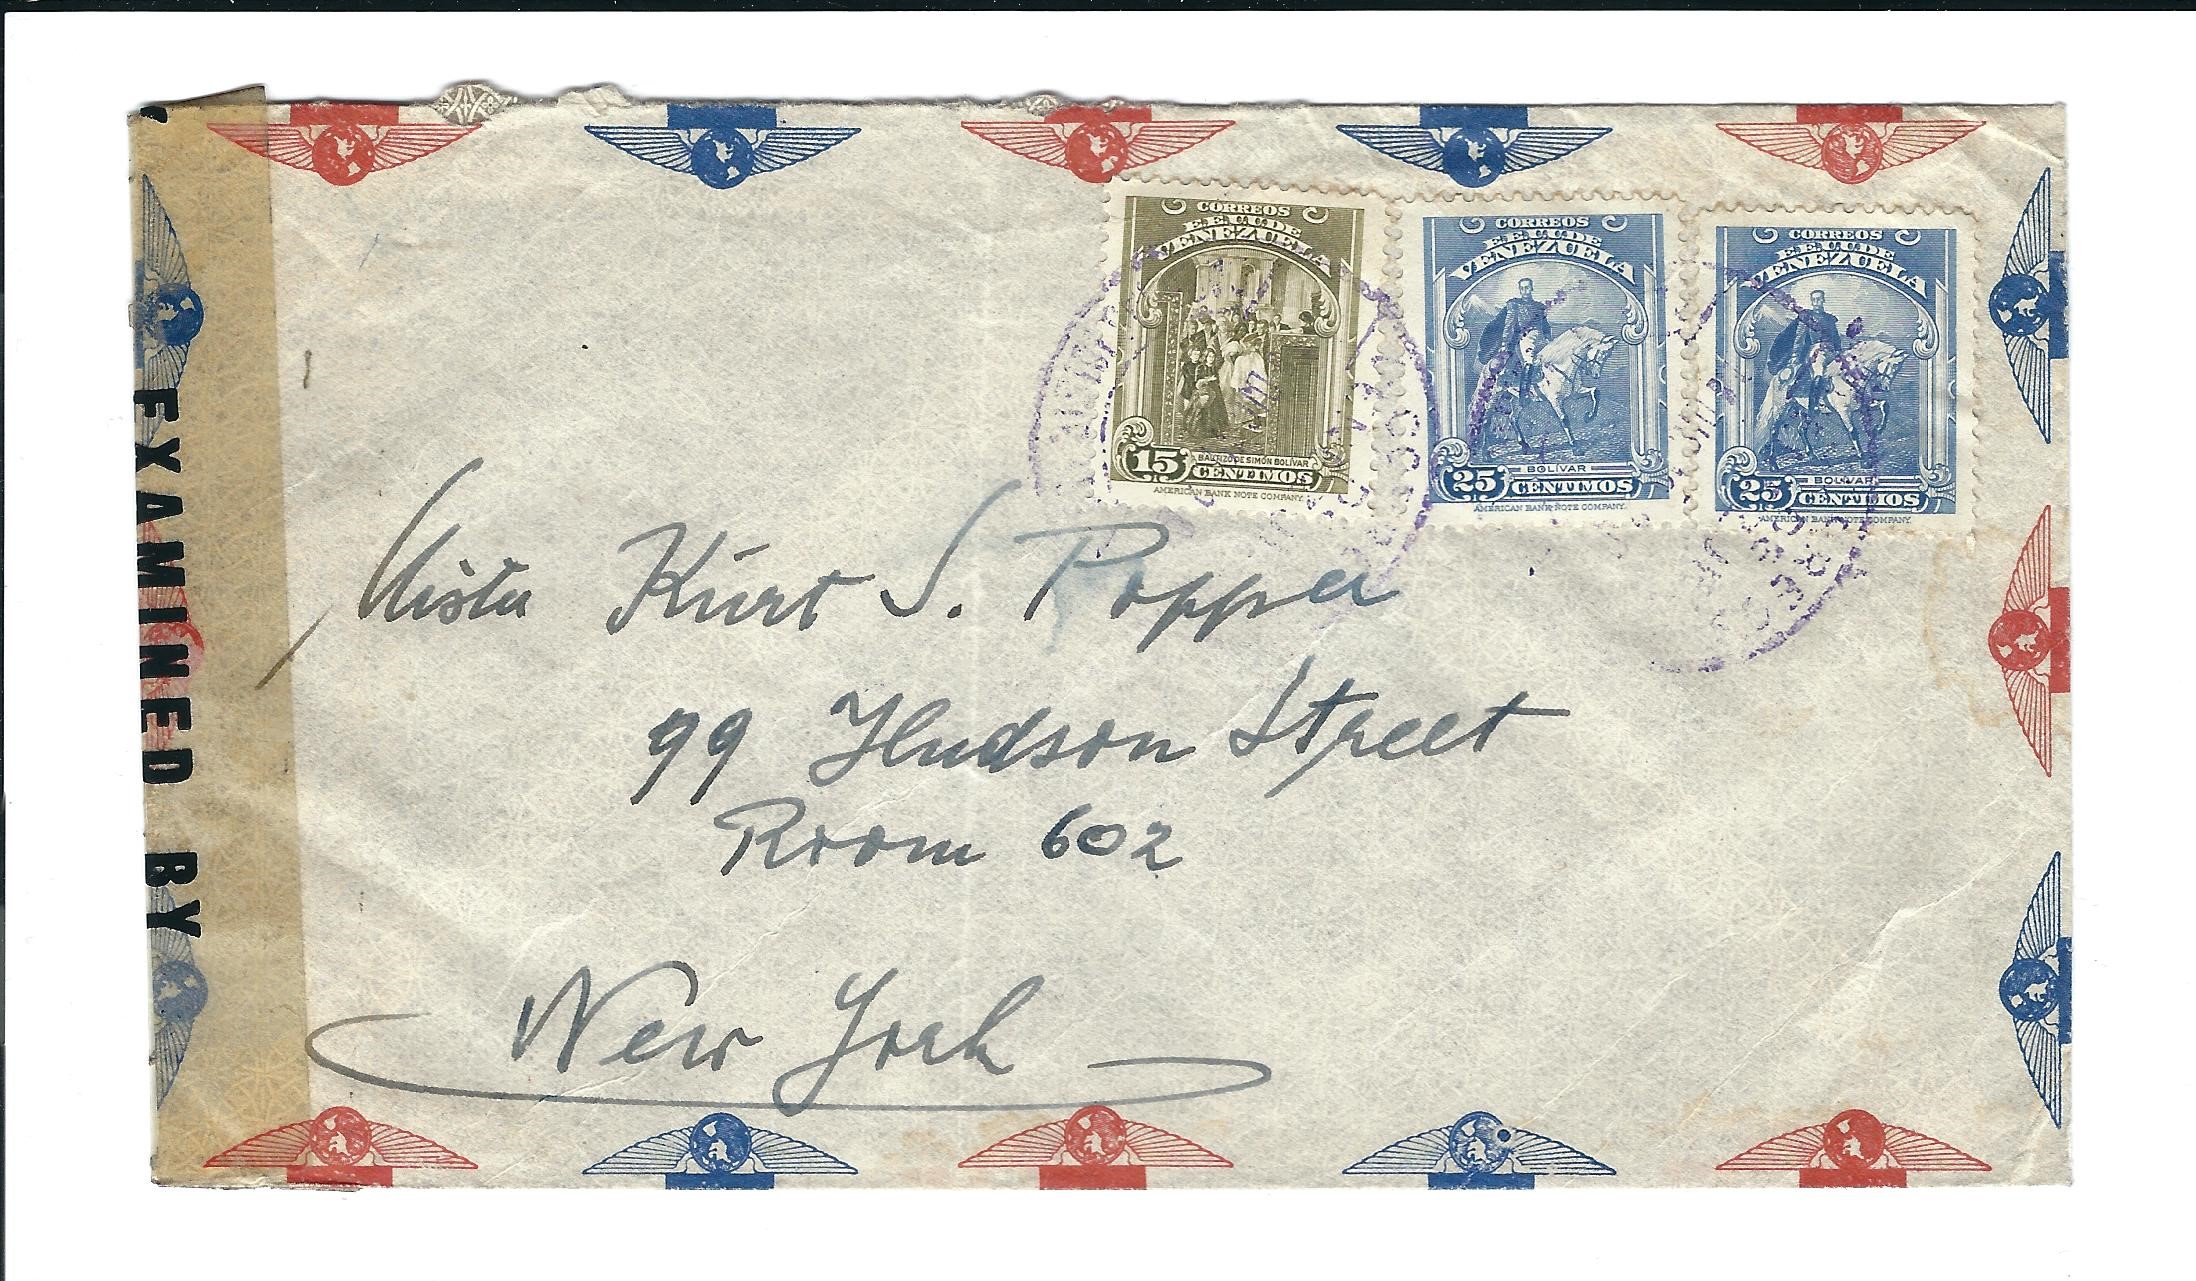 CORREOS
EE.UU. DE
VENEZUELA
BAUTIZO DE SIMÓN BOLÍVAR
15 CENTIMOS
AMERICAN BANK NOTE COMPANY.
CORREOS
EE.UU. DE
VENEZUELA
BOLÍVAR
25 CÉNTIMOS
AMERICAN BANK NOTE COMPANY.
CORREOS
EE.UU. DE
VENEZUELA
BOLÍVAR
25 CÉNTIMOS
AMERICAN BANK NOTE COMPANY.
EXAMINED BY
Mister Kurt S. Popper
99 Hudson Street
Room 602
New York